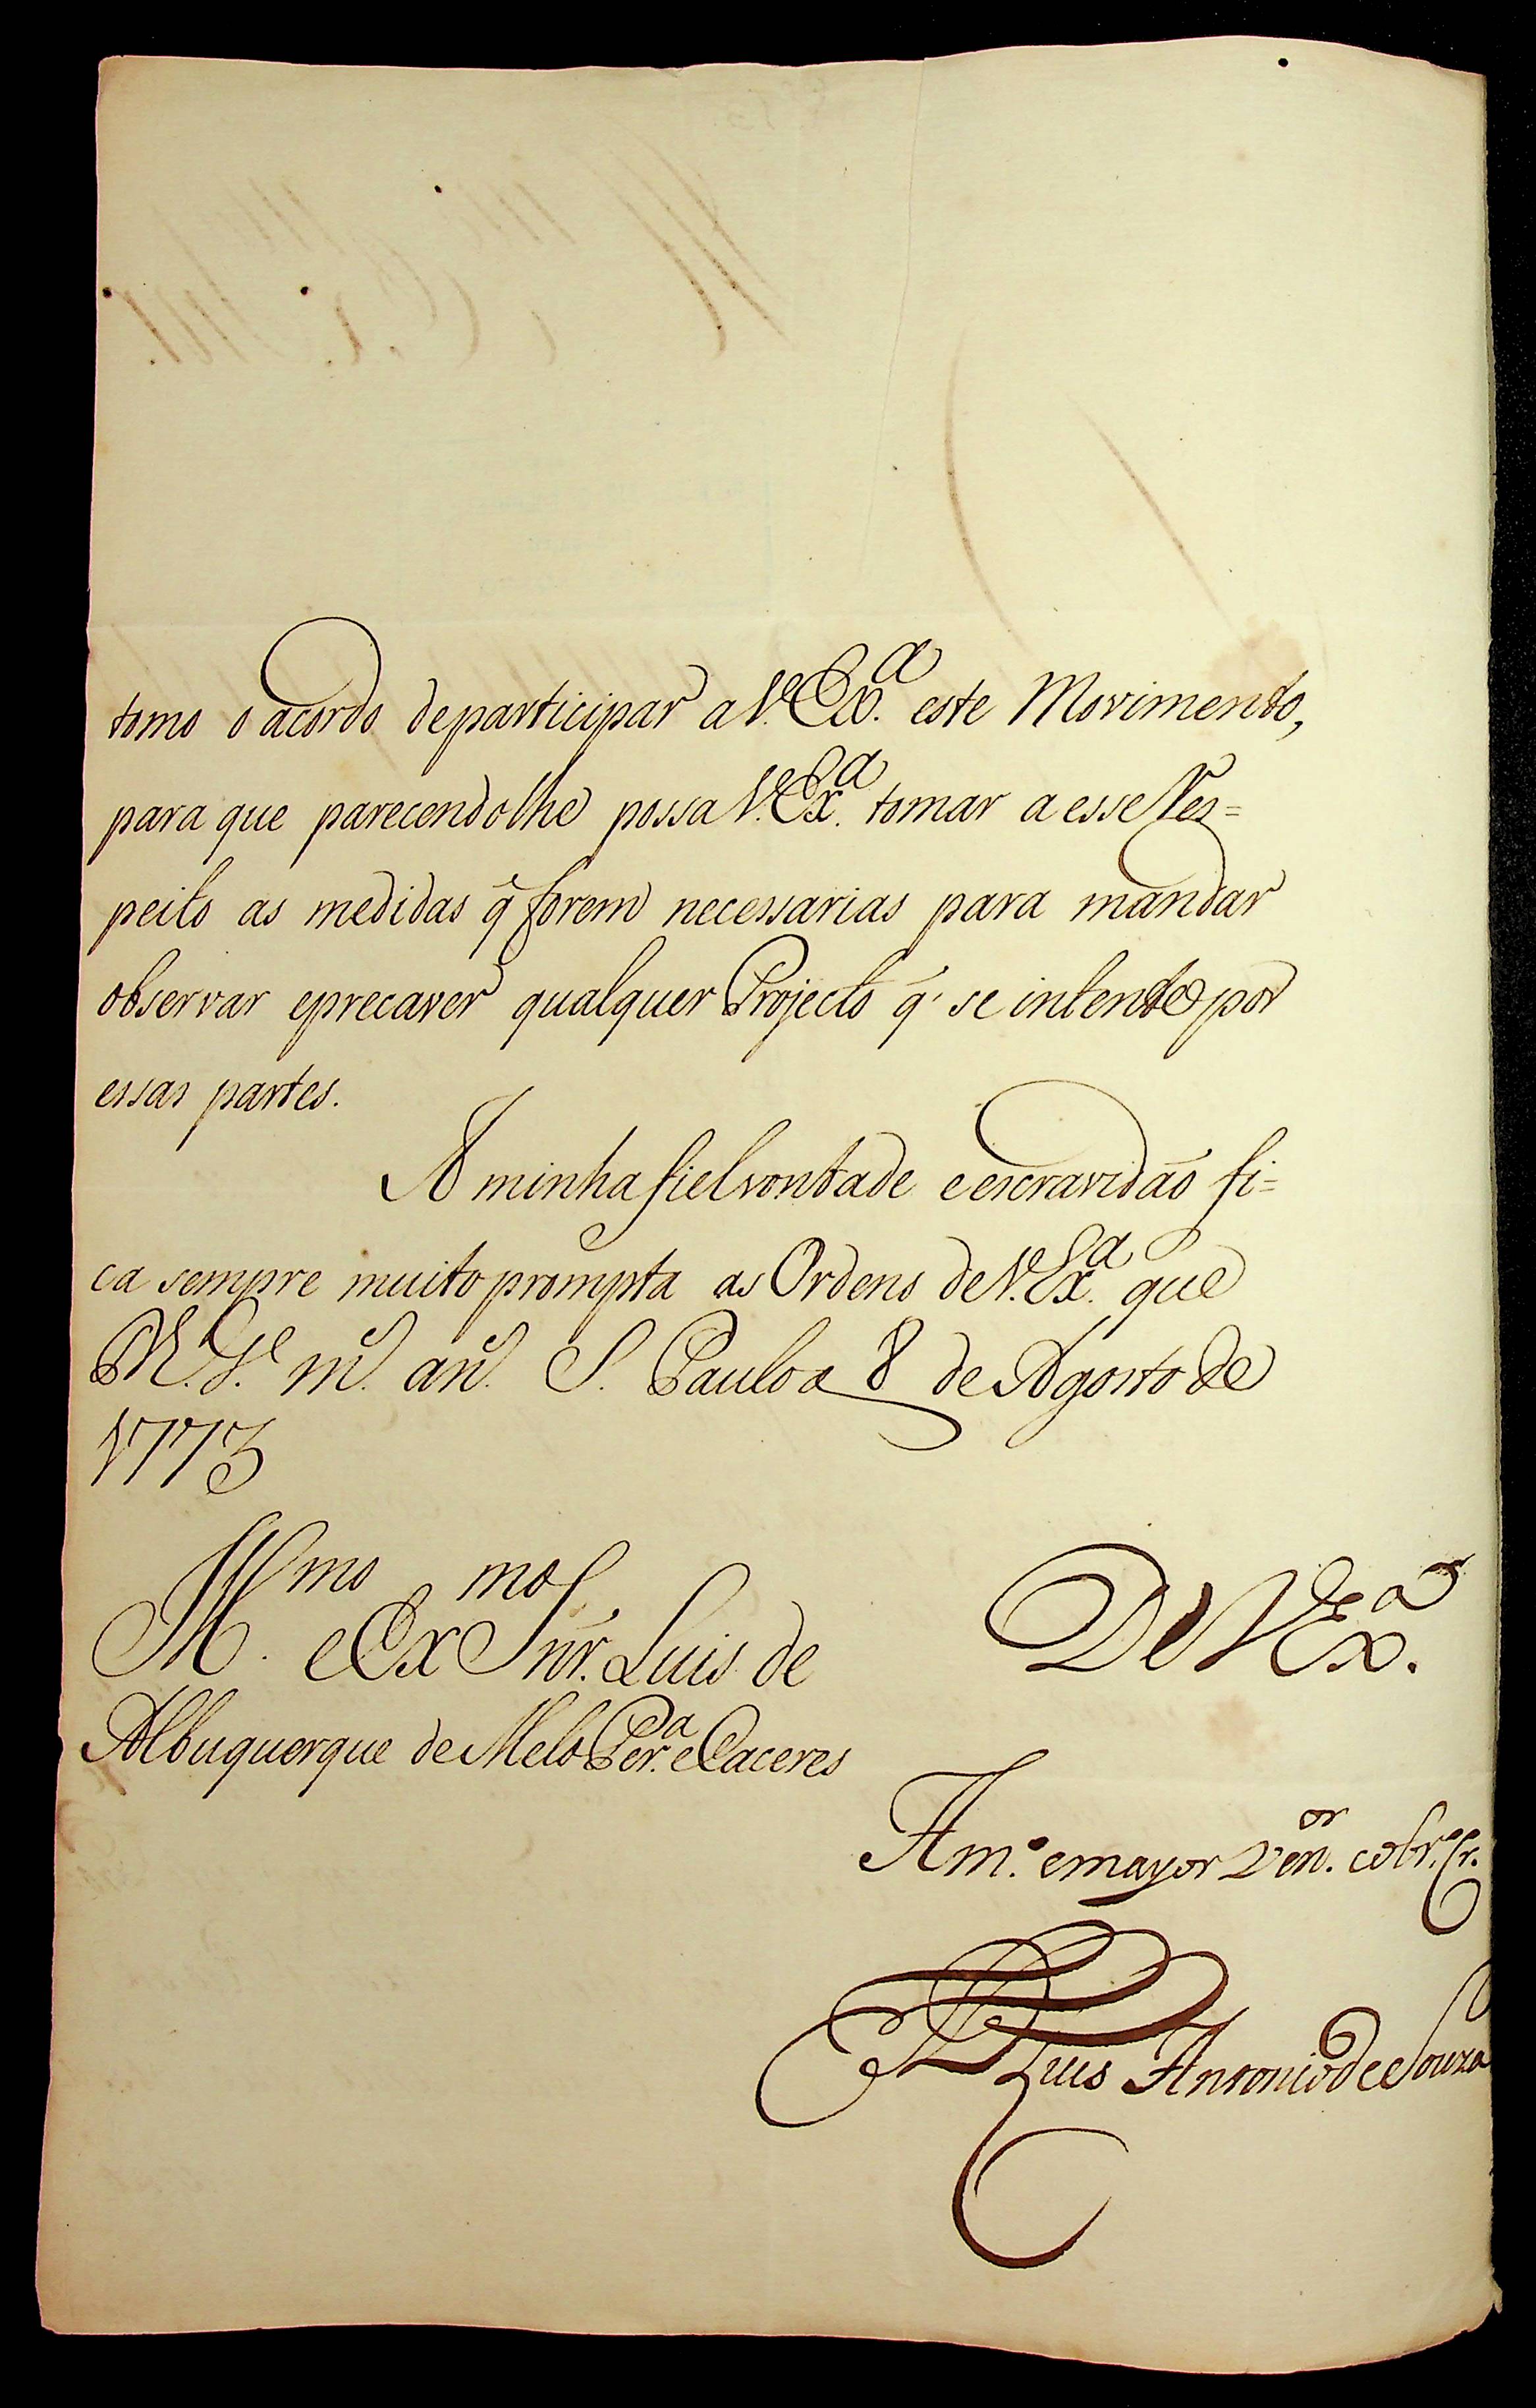 tomo o acordo departicipar a V. Ex.ª este Movimento,
para que parecendolhe possa V. Ex.ª tomar a esse Res=
peito as medidas q̃ forem necessarias para mandar
observar eprecaver qualquer Projecto q̃ se intente por
essas partes.
A minha fiel vontade eescravidaõ fi=
ca sempre muito prompta as Ordens de V. Ex.ª que
D.s g.e m.s an.s S. Paulo a 8 de Agosto de
1773
Ill.mo e Ex.mo Snr. Luis de
Albuquerque de Melo Per.ª e Caceres
De V Ex.ª
Am.º emayor Ven.or eobr.º Cr.
Luis Antonio de Souza